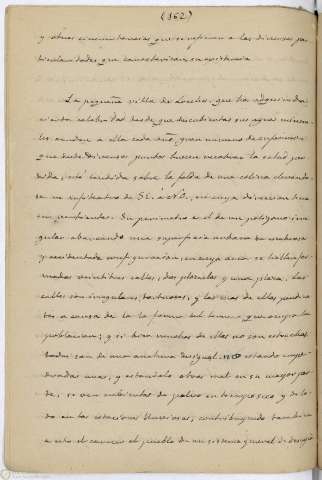 (162)
y otras circunstancias que se refieren a las diversas par
ticularidades que caracterizan su existencia
La pequeña villa de Loeches, que ha adquirido
cierta celebridad desde que descubiertas sus aguas minera
les acuden a ella cada año gran número de enfermos
que desde diversos puntos buscan recobrar la salud per
dida, está tendida sobre la falda de una colina
de SE. a NO.
Su perímetro es el de un polígono irre
gular abarcando una superficie
y accidentada en cuya área se hallan for
madas veintitres calles, dos plazuelas y una plaza. Las
calles son irregulares, tortuosas, y las mas de ellas pendien
tes a causa de la forma del terreno que ocupa la
poblacion; y si bien muchas de ellas no son estrechas
todas son de una anchura desigual. No estando empe
dradas unas, y estandolo otras mal en su mayor par
te, se ven cubiertas de polvo en tiempo seco y de lo
do en las estaciones lluviosas, contribuyendo tambien
a esto el carecer el pueblo de un sistema general de desagüe